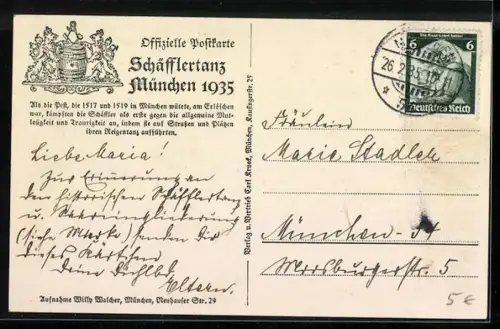 Offizielle Postkarte
Schäfflertanz
München 1935
Als die Pest, die 1517 und 1519 in München wütete, am Erlöschen
war, kämpften die Schäffler als erste gegen die allgemeine Mut-
losigkeit und Traurigkeit an, indem sie auf Straßen und Plätzen
ihren Reigentanz aufführten.
Liebe Maria!
Zur Erinnerung an
den historischen Schäfflertanz
u. Saareingliederung
(siehe Marke) senden Dir
dieses Kärtchen
Deine
Eltern.
Aufnahme Willy Walcher, München, Neuhauser Str. 29
Verlag u. Vertrieb Carl Kruck, München, 25
6
6
Deutsches Reich
26.2.35
Fräulein
Marie Stadler
München - 54
5
5 €